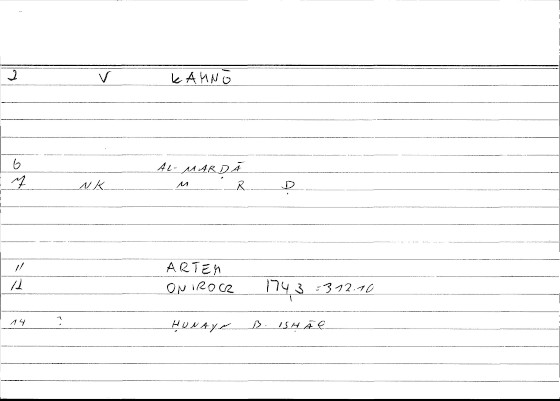 2 V KAMNŌ
6 AL-MARḌĀ
7 NK M R Ḍ
11 ARTEM
12 ONIROCR 174,3 =312.10
14 ? ḤUNAYN B. ISḤĀQ